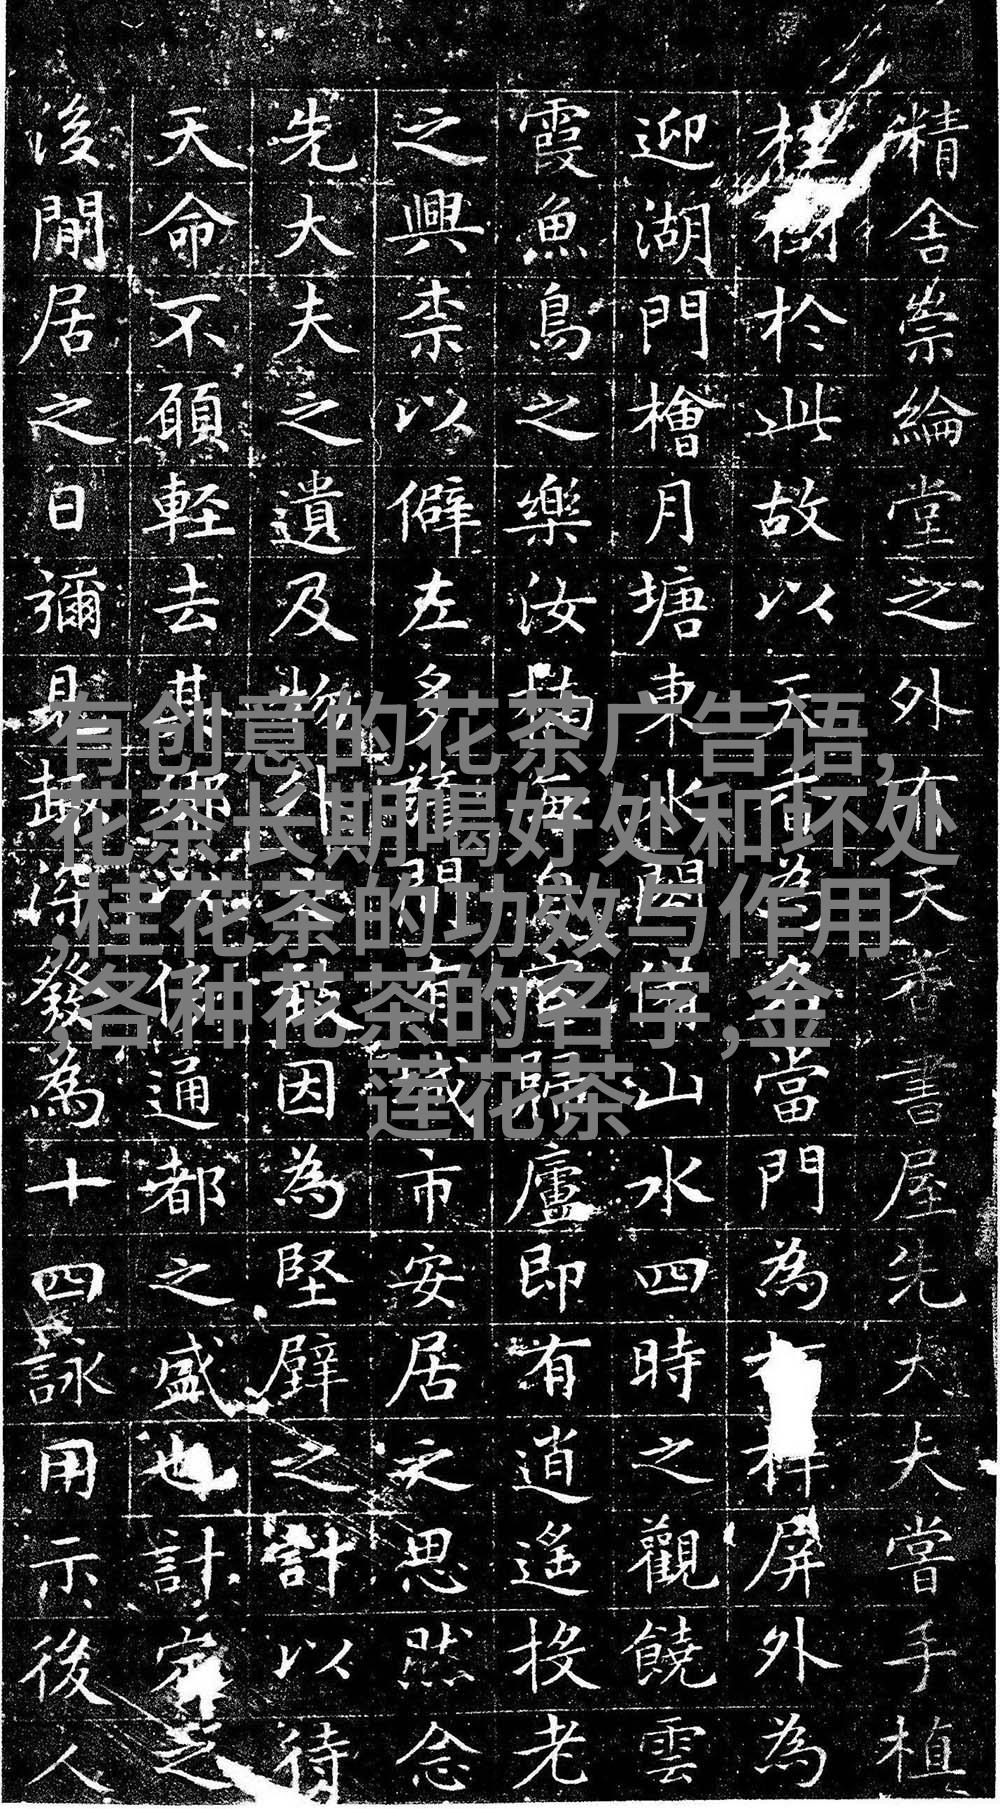 精舍崇綸堂之外亦天香書屋先大夫嘗手植
桂樹於此故以天香為名當門為樨屏外為
迎湖門檜月塘東水山水四時之觀饒雲
霞魚鳥之樂汝楠每官歸廬即有逍遙投老
之興柰以僻左多閒有城市安居之思然念
先大夫之遺及物之教因為堅壁之計以待
天命不願輕去其鄉通都之盛也計定之
後閒居之日彌見趣深發為十四詠用示後人
有创意的花茶广告语,
花茶长期喝好处和坏处
,桂花茶的功效与作用
,各种花茶的名字,金
莲花茶